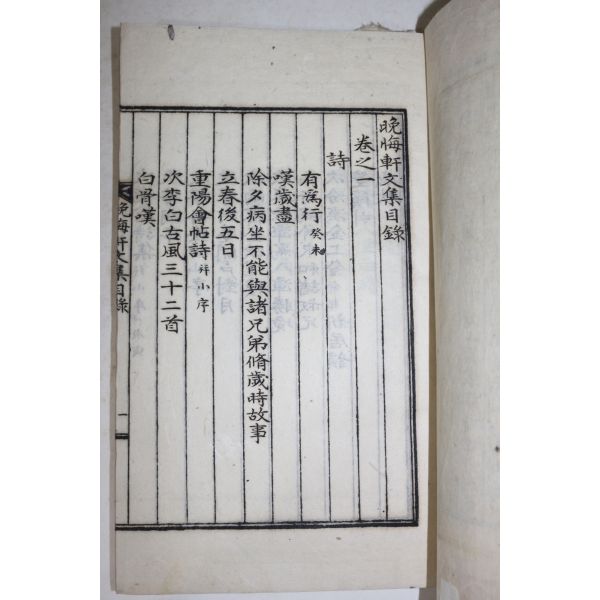 晩晦軒文集目錄
卷之一
詩
有爲行 癸未
嘆歲盡
除夕病坐不能與諸兄弟脩歲時故事
立春後五日
重陽會帖詩 幷小序
次李白古風三十二首
白骨嘆
晩晦軒文集目錄 一